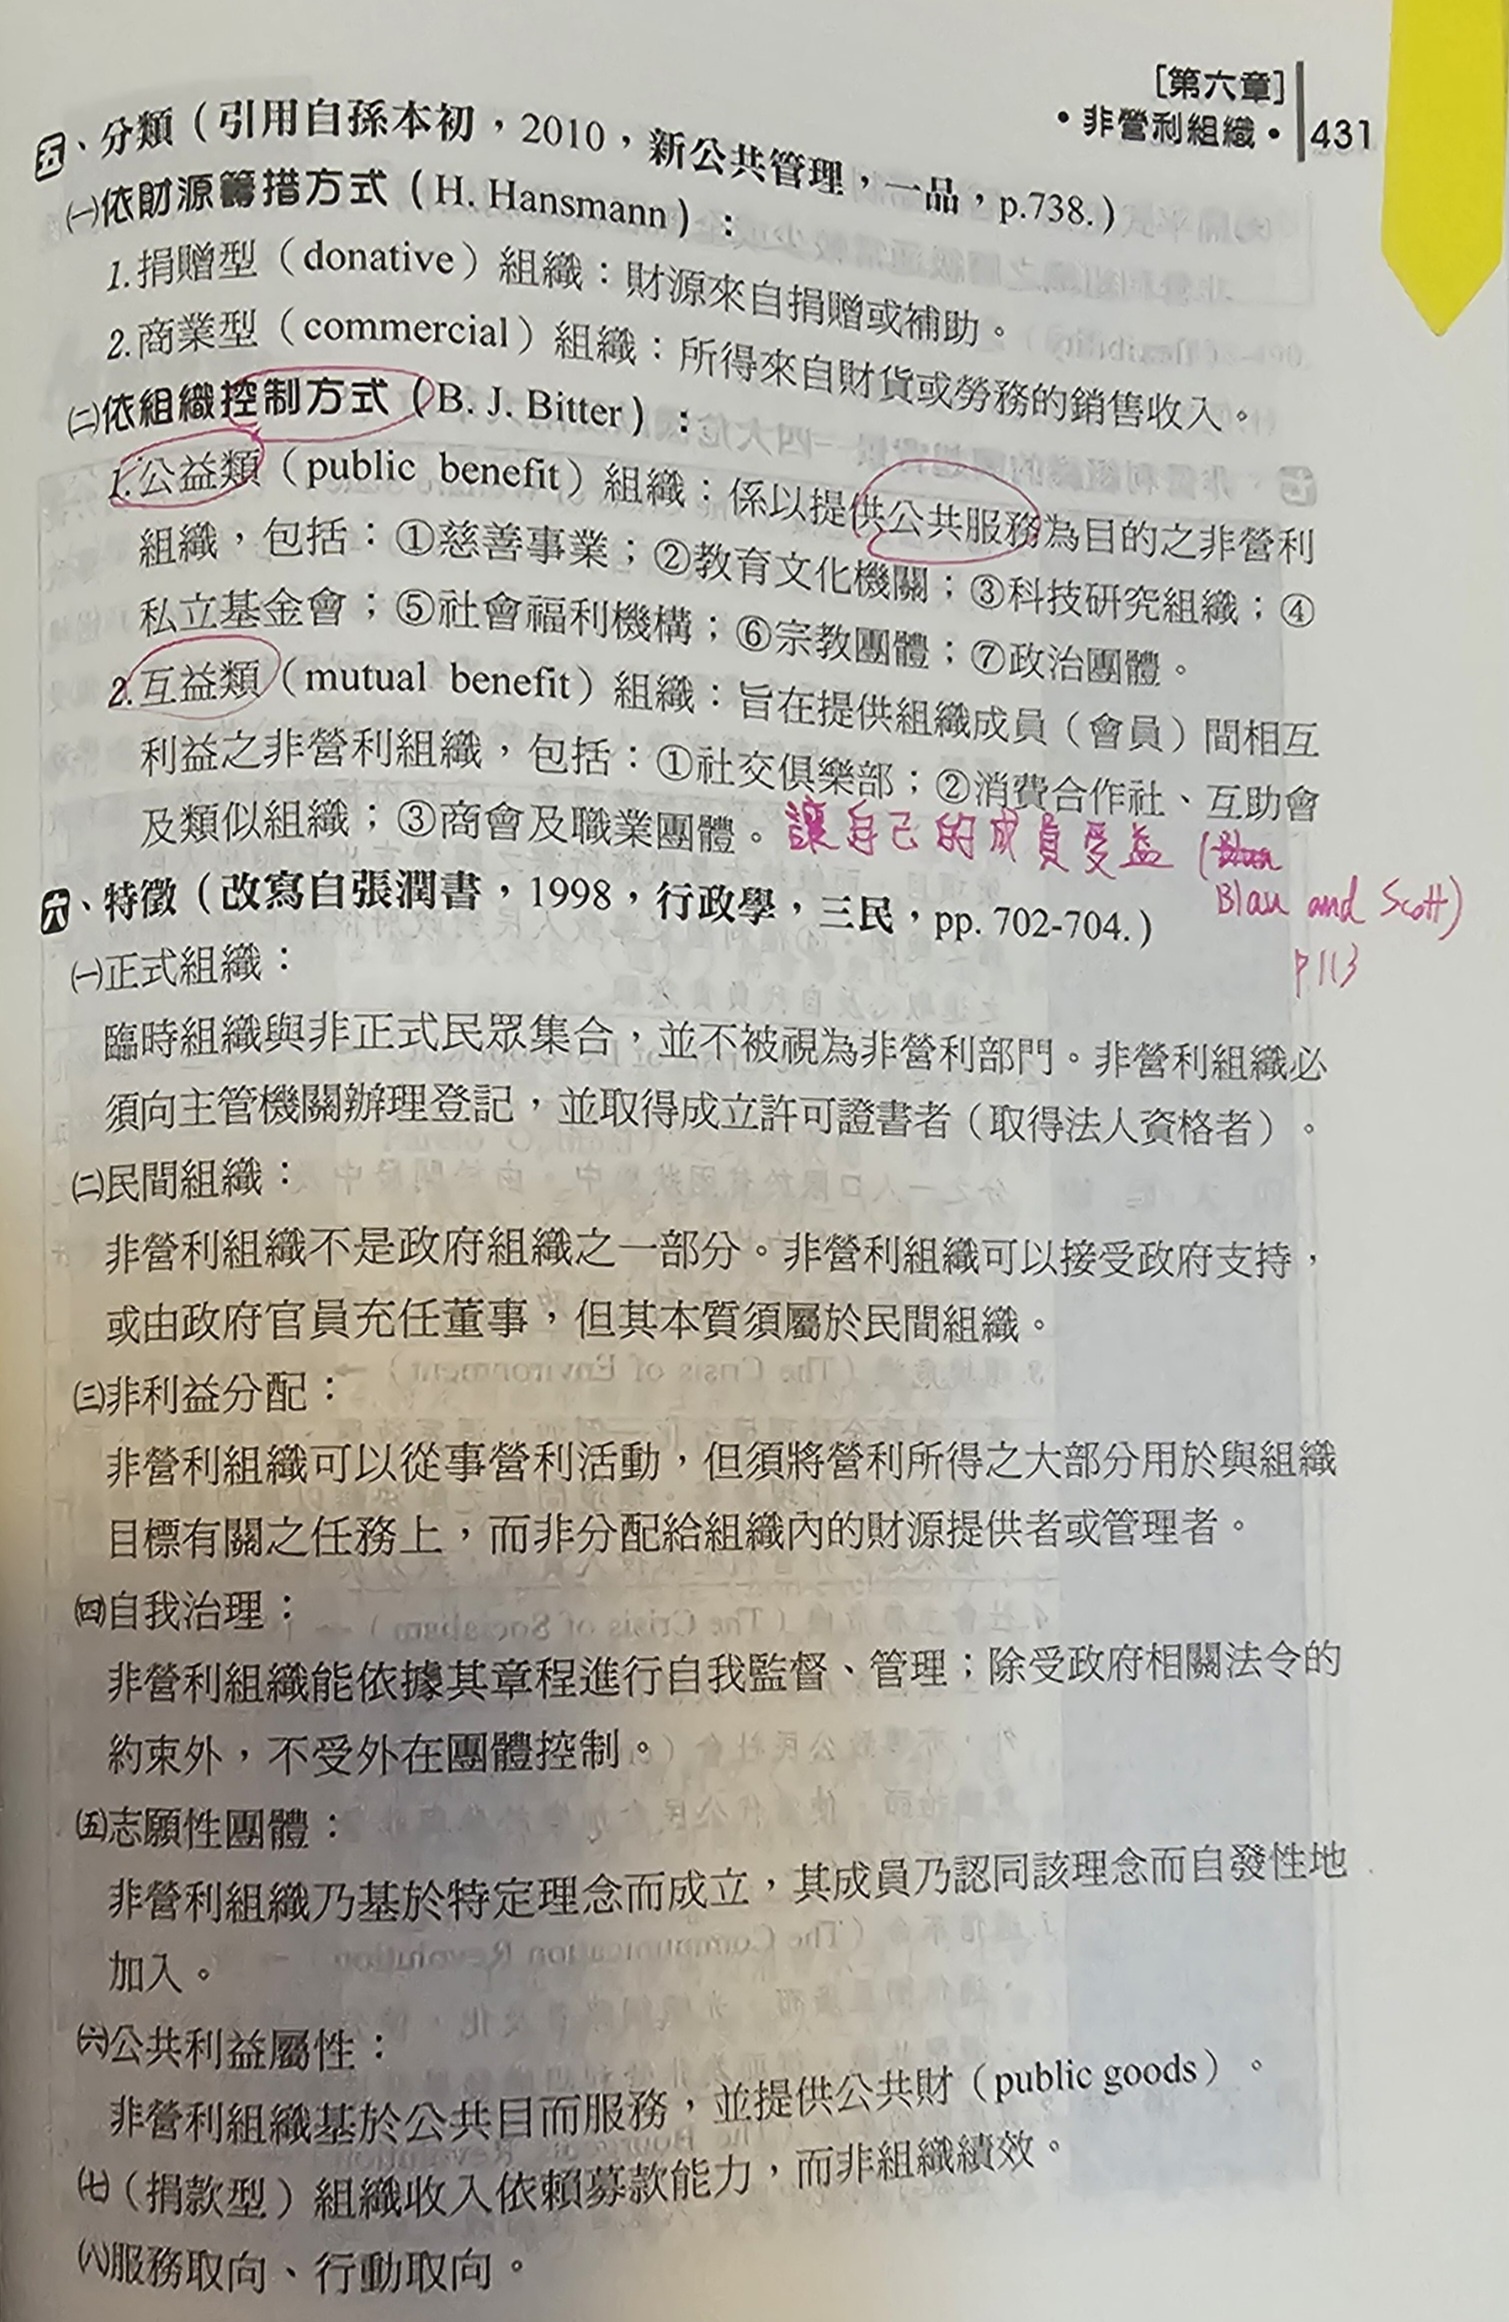 ［第六章］
•非營利組織• 431
五、分類（引用自孫本初，2010，新公共管理，一品，p.738.）
㈠依財源籌措方式（H. Hansmann）：
1.捐贈型（donative）組織：財源來自捐贈或補助。
2.商業型（commercial）組織：所得來自財貨或勞務的銷售收入。
㈡依組織控制方式（B. J. Bitter）：
1.公益類（public benefit）組織：係以提供公共服務為目的之非營利
組織，包括：①慈善事業；②教育文化機關；③科技研究組織；④
私立基金會；⑤社會福利機構；⑥宗教團體；⑦政治團體。
2.互益類（mutual benefit）組織：旨在提供組織成員（會員）間相互
利益之非營利組織，包括：①社交俱樂部；②消費合作社、互助會
及類似組織；③商會及職業團體。讓自己的成員受益（
Blau and Scott）
P113
六、特徵（改寫自張潤書，1998，行政學，三民，pp. 702-704.）
㈠正式組織：
臨時組織與非正式民眾集合，並不被視為非營利部門。非營利組織必
須向主管機關辦理登記，並取得成立許可證書者（取得法人資格者）。
㈡民間組織：
非營利組織不是政府組織之一部分。非營利組織可以接受政府支持，
或由政府官員充任董事，但其本質須屬於民間組織。
㈢非利益分配：
非營利組織可以從事營利活動，但須將營利所得之大部分用於與組織
目標有關之任務上，而非分配給組織內的財源提供者或管理者。
㈣自我治理：
非營利組織能依據其章程進行自我監督、管理；除受政府相關法令的
約束外，不受外在團體控制。
㈤志願性團體：
非營利組織乃基於特定理念而成立，其成員乃認同該理念而自發性地
加入。
㈥公共利益屬性：
非營利組織基於公共目而服務，並提供公共財（public goods）。
㈦（捐款型）組織收入依賴募款能力，而非組織績效。
㈧服務取向、行動取向。